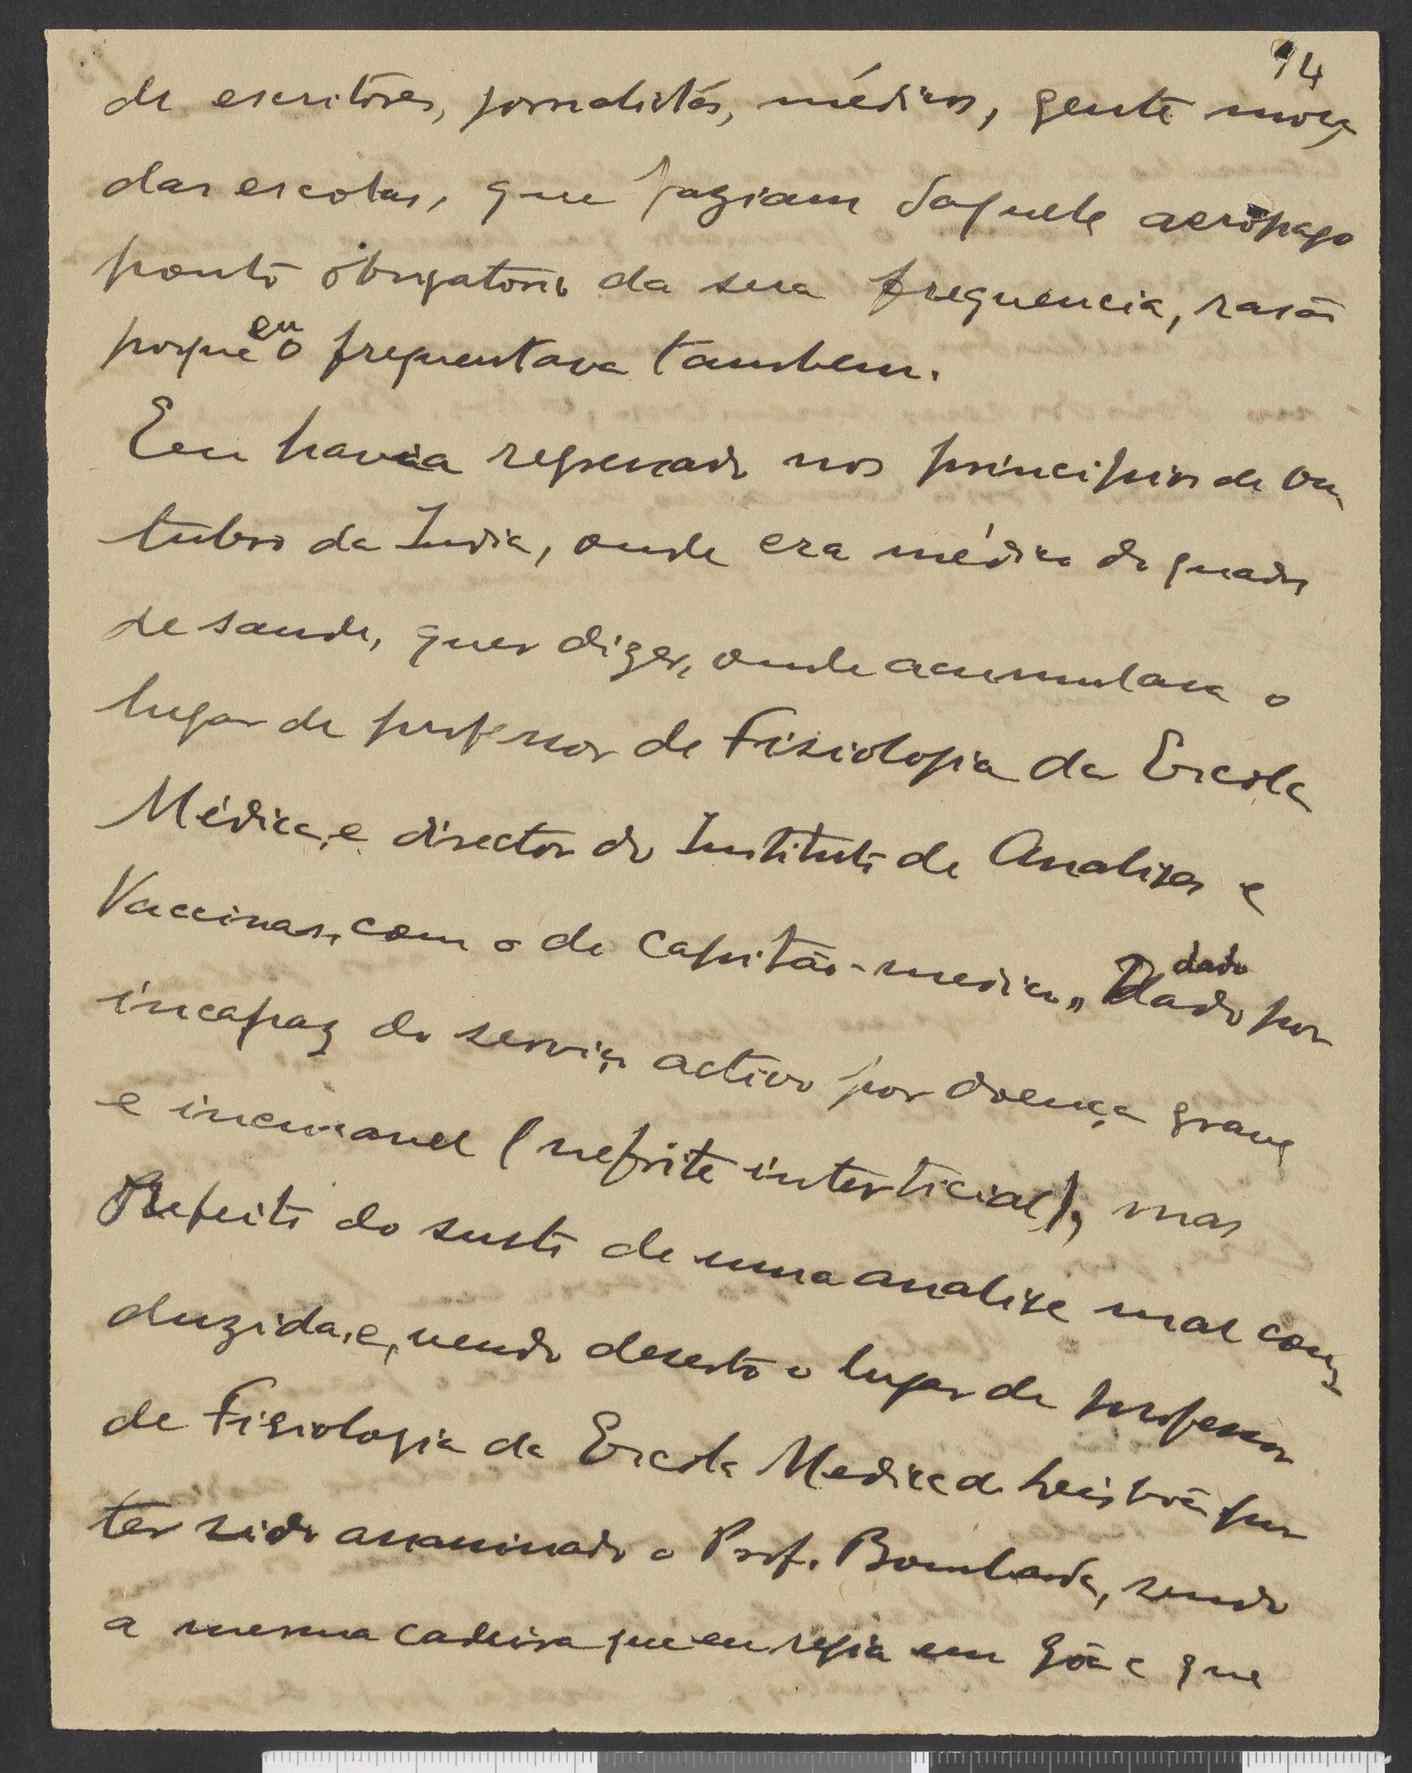 14
de escritores, jornalistas, médicos, gente moça
das escolas, que faziam daquele aerópago
ponto obrigatorio da sua frequencia, rasão
porque eu o frequentava tambem.
Eu havia regressado nos principios de Ou
tubro da India, onde era médico do quadro
de saude, quer dizer, onde acumulava o
lugar de professor de Fisiologia da Escola
Médica, e director do Instituto de Analises e
Vaccinas, com o de capitão-medico, dado por
incapaz do serviço activo por doença grave
e incuravel (nefrite intersticial), mas
Refeito do susto de uma analise mal con
duzida, e, vendo deserto o lugar de professor
de Fisiologia da Escola Medica de Lisboa por
ter sido assassinado o Prof. Bombarda, sendo
a mesma cadeira que eu regia em Gôa e que